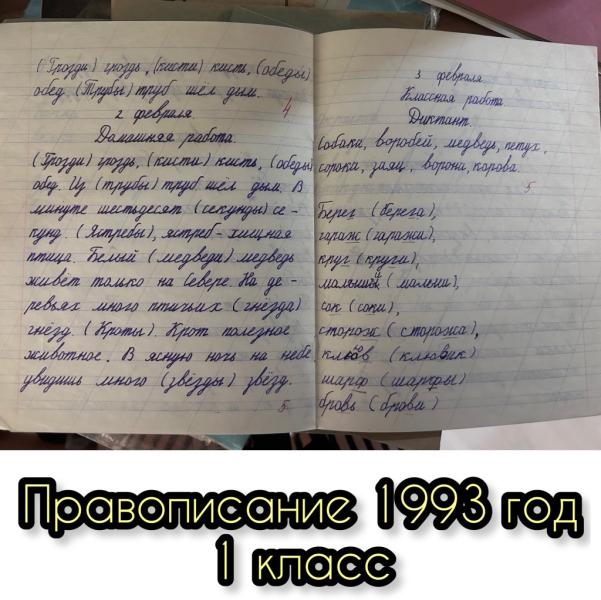 (Грозди) гроздь, (кисти) кисть, (обеды)
обед (Трубы) труб шёл дым.
4
2 февраля
Домашняя работа.
(Грозди) гроздь, (кисти) кисть, (обеды)
обед. Из (трубы) труб шёл дым. В
минуте шестьдесят (секунды) се-
кунд. (Ястребы), ястреб - хищная
птица. Белый (медведи) медведь
живёт только на Севере. На де-
ревьях много птичьих (гнёзда)
гнёзд. (Кроты). Крот полезное
животное. В ясную ночь на небе
увидишь много (звёзды) звёзд.
5
3 февраля
Классная работа.
Диктант.
Собака, воробей, медведь, петух,
сорока, заяц, ворона, корова.
5
Берег (берега),
гараж (гаражи),
круг (круги),
(малыши),
сок (соки),
сторож (сторожа),
(клювик)
шарф (шарфы)
бровь (брови)
Правописание 1993 год
1 класс